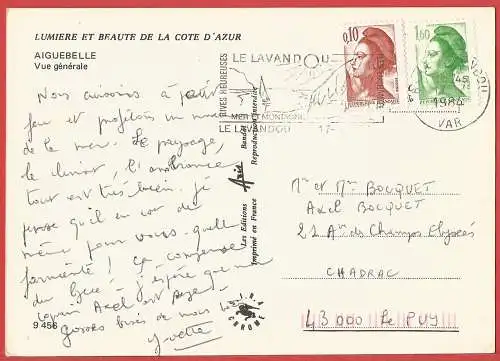 LUMIERE ET BEAUTE DE LA COTE D'AZUR
AIGUEBELLE
Vue générale
Nous avissons à petit
feu et profitons un max
de la mer. Le paysage,
le climat, l'ambiance
tout est très bien. Je
pense qu'il en est de
même pour vous. quelle
du lycée - J'espère que mon
copain Axel est sage.
Grosses bises de nous
Yvette
9 456
RIVES HEUREUSES
LE LAVANDOU
MER ET MONTAGNE
LE LAVANDOU 17-
0,10
1,60
1984
VAR
Les Editions Aris
Imprimé en France
Reproduction interdite
CHROME
Mr et Mme BOUQUET
Axel BOUQUET
21 Av des Champs Elysées
CHADRAC
43 000 Le PUY